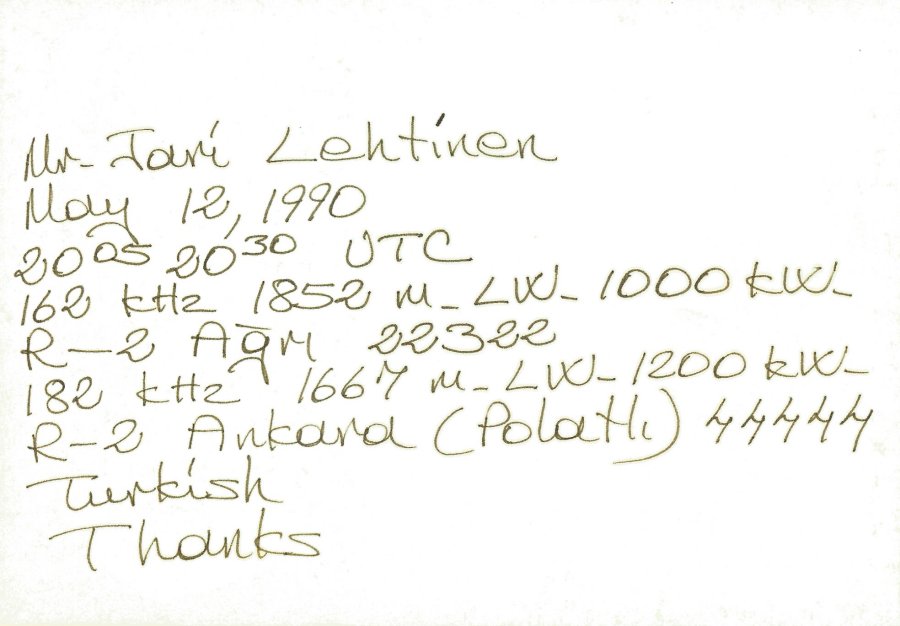 Mr. Jari Lehtinen
May 12, 1990
20⁰⁵ 20³⁰ UTC
162 kHz 1852 m - LW - 1000 kW -
R-2 Ağrı 22322
182 kHz 1667 m - LW - 1200 kW -
R-2 Ankara (Polatlı) 44444
Turkish
Thanks